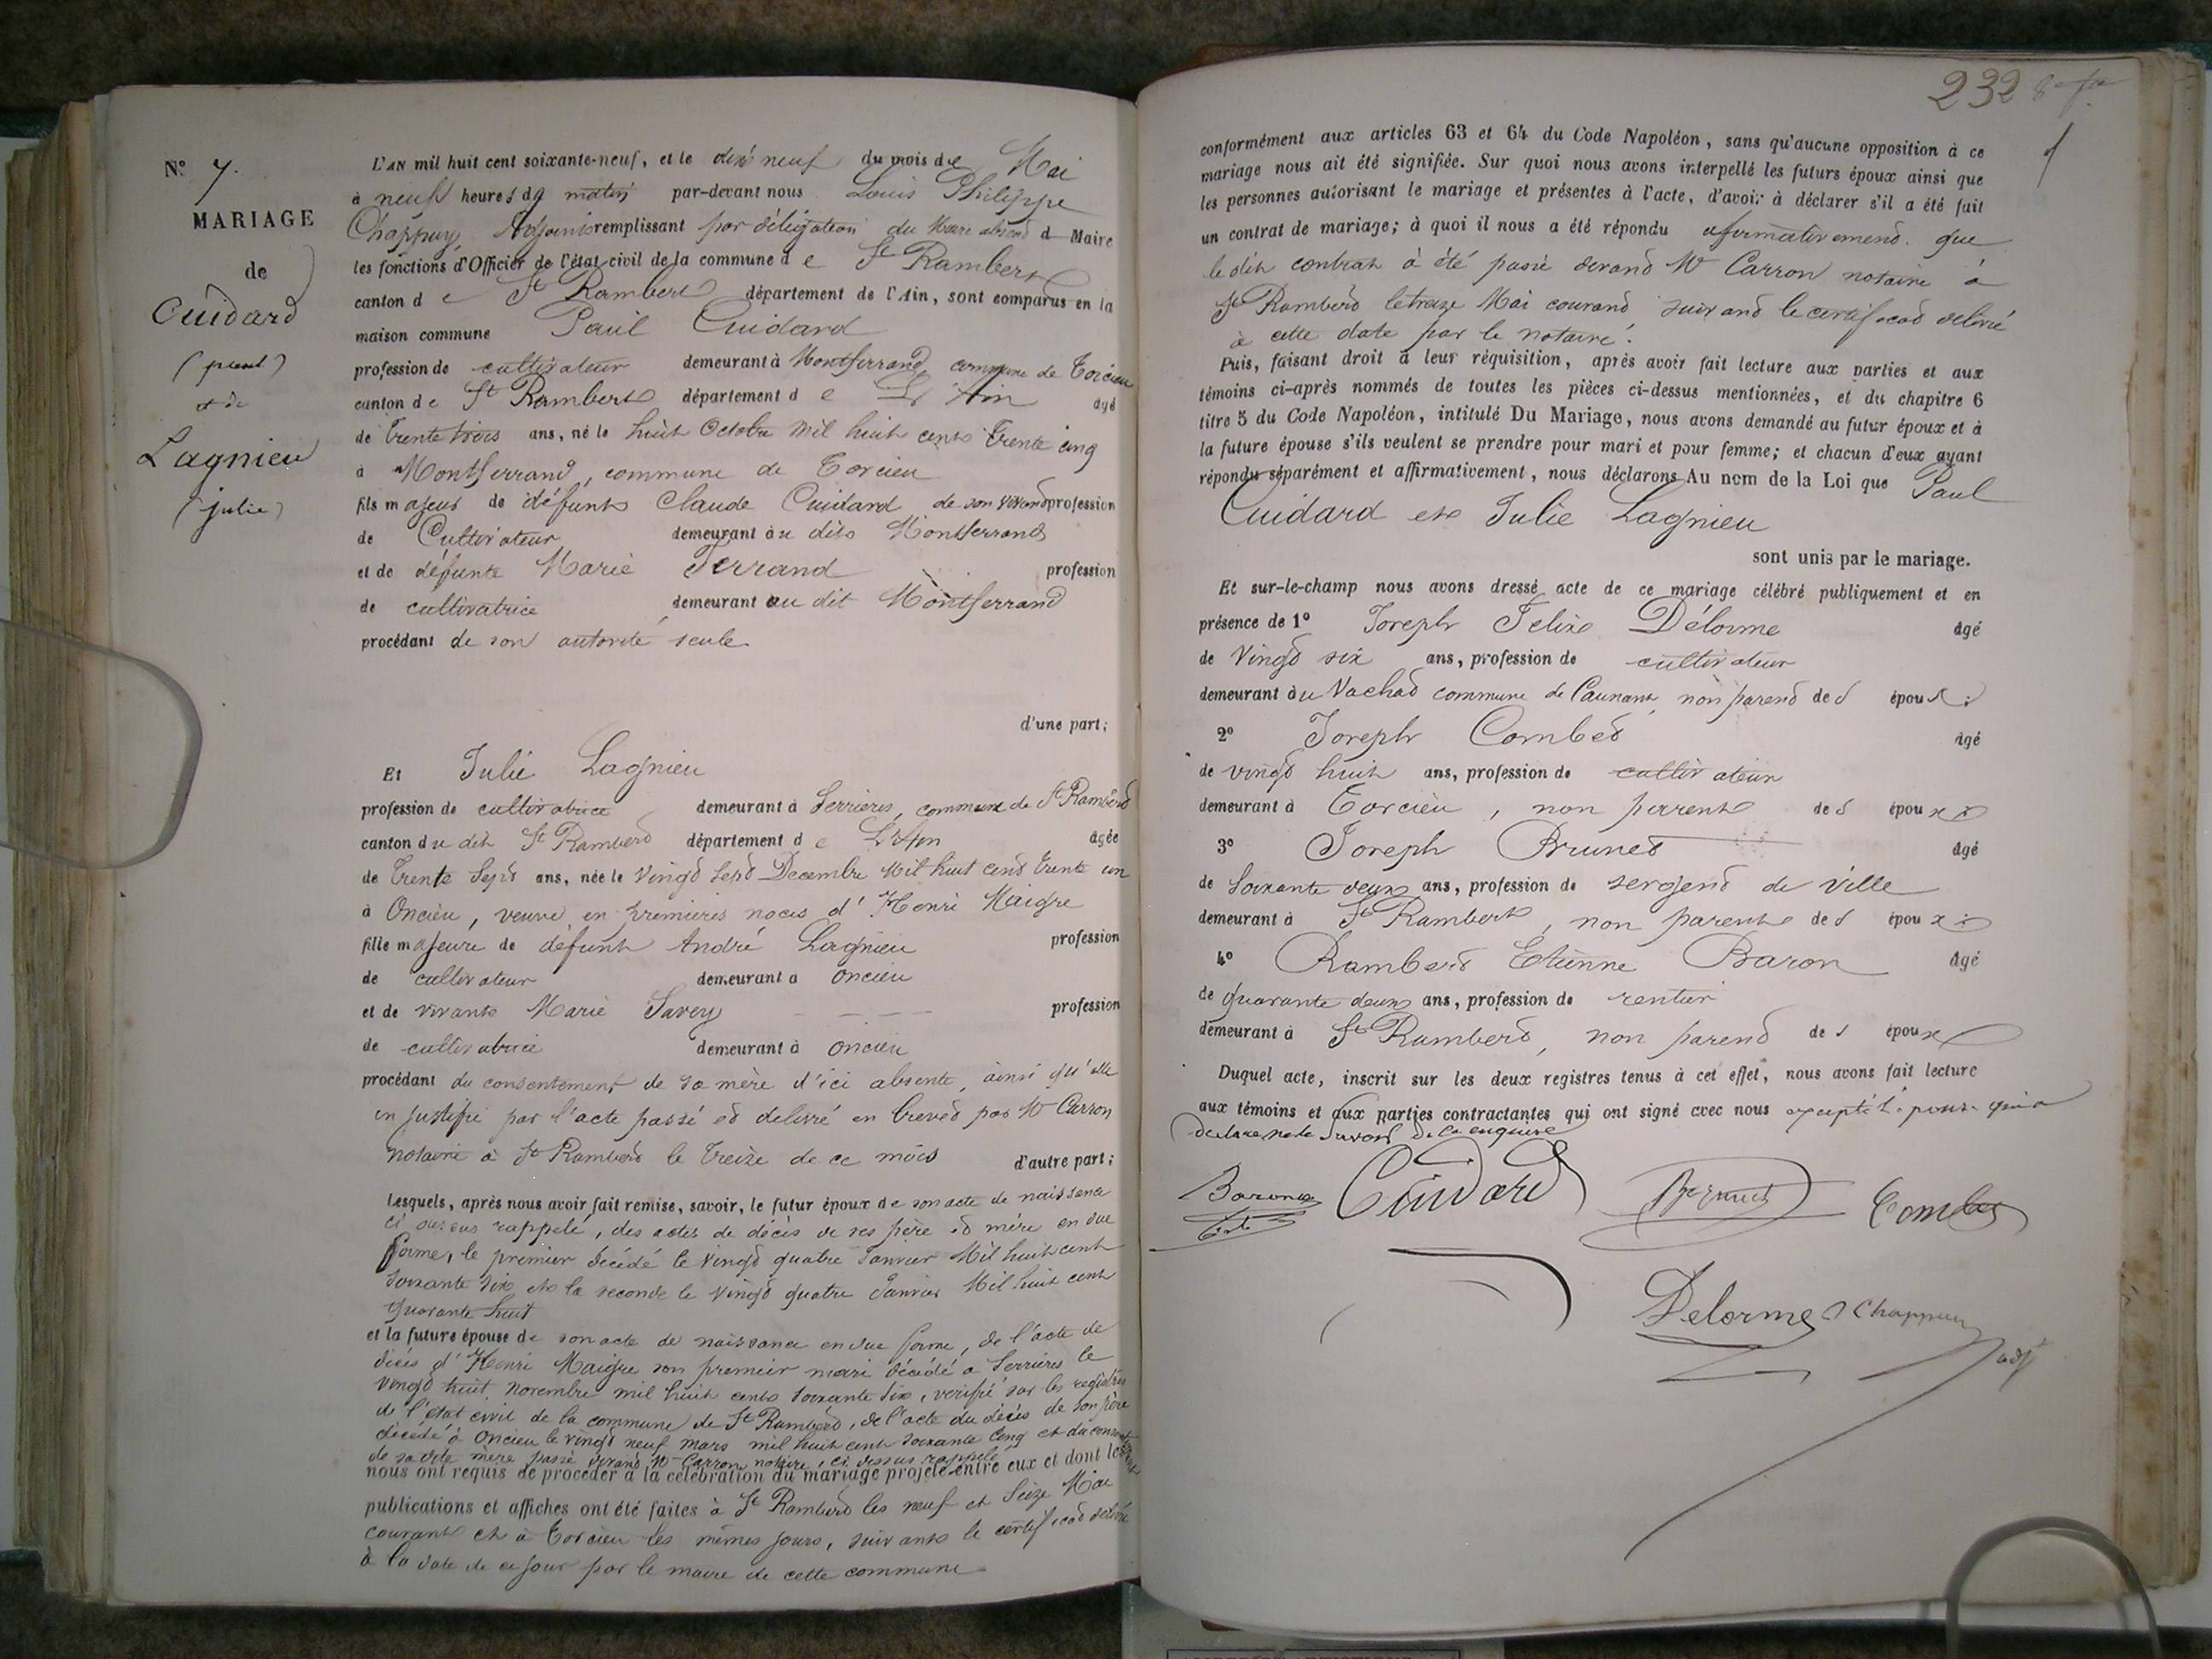 N.º 7.
MARIAGE
de
Cuidard
(paul)
et de
Lagnieu
(julie)
L'AN mil huit cent soixante-neuf, et le dix neuf du mois de Mai
à neuf heures du matin par-devant nous Louis Philippe
Chappuy Adjoint remplissant par délégation du Maire absent d Maire
les fonctions d'Officier de l'état civil de la commune d e St Rambert
canton d e St Rambert département de l'Ain, sont comparus en la
maison commune Paul Cuidard
profession de cultivateur demeurant à Montferrand, commune de Torcieu
canton de St Rambert département d e L'Ain âgé
de trente trois ans, né le huit Octobre mil huit cent trente cinq
à Montferrand, commune de Torcieu
fils majeur de défunt Claude Cuidard de son vivant profession
de Cultivateur demeurant au dit Montferrand
et de défunte Marie Ferrand profession
de cultivatrice demeurant au dit Montferrand
procédant de son autorité seule
d'une part;
Et Julie Lagnieu
profession de cultivatrice demeurant à Serrières, commune de St Rambert
canton du dit St Rambert département d e L'Ain âgée
de trente sept ans, née le vingt sept Decembre Mil huit cent trente un
à Oncieu, veuve en premieres noces d'Henri Maigre
fille majeure de défunt André Lagnieu profession
de cultivateur demeurant a Oncieu
et de vivante Marie Savey profession
de cultivatrice demeurant à Oncieu
procédant du consentement de sa mère d'ici absente, ainsi qu'elle
en justifie par l'acte passé et delivré en brevet par Me Carron
notaire à St Rambert le treize de ce mois d'autre part;
Lesquels, après nous avoir fait remise, savoir, le futur époux de son acte de naissance
ci dessus rappelé, des actes de décès de ses père et mère en due
forme, le premier décédé le vingt quatre Janvier Mil huit cent
soixante six et la seconde le vingt quatre Janvier Mil huit cent
quarante huit
et la future épouse de son acte de naissance en due forme, de l'acte de
décès d'Henri Maigre son premier mari décédé a Serrières le
vingt huit novembre mil huit cent soixante six, verifié sur les registres
de l'état civil de la commune de St Rambert, de l'acte du décès de son père
décédé à Oncieu le vingt neuf mars mil huit cent soixante cinq et du
de sa dite mère passé devant Me Carron notaire, ci dessus rappelé
nous ont requis de procéder à la célébration du mariage projeté entre eux et dont les
publications et affiches ont été faites à St Rambert les neuf et seize Mai
courant et à Torcieu les mêmes jours, suivant le certificat delivré
à la date de ce jour par le maire de cette commune
232
conformément aux articles 63 et 64 du Code Napoléon, sans qu'aucune opposition à ce
mariage nous ait été signifiée. Sur quoi nous avons interpellé les futurs époux ainsi que
les personnes autorisant le mariage et présentes à l'acte, d'avoir à déclarer s'il a été fait
un contrat de mariage; à quoi il nous a été répondu afirmativement. que
le dit contrat à été passé devant Me Carron notaire à
St Rambert le treize Mai courant suivant le certificat delivré
à cette date par le notaire.
Puis, faisant droit à leur réquisition, après avoir fait lecture aux parties et aux
témoins ci-après nommés de toutes les pièces ci-dessus mentionnées, et du chapitre 6
titre 5 du Code Napoléon, intitulé Du Mariage, nous avons demandé au futur époux et à
la future épouse s'ils veulent se prendre pour mari et pour femme; et chacun d'eux ayant
répondu séparément et affirmativement, nous déclarons Au nom de la Loi que Paul
Cuidard et Julie Lagnieu
sont unis par le mariage.
Et sur-le-champ nous avons dressé acte de ce mariage célébré publiquement et en
présence de 1º Joseph Felix Délorme âgé
de vingt six ans, profession de cultivateur
demeurant au Vachat commune de non parent des époux
2º Joseph Combet âgé
de vingt huit ans, profession de cultivateur
demeurant à Torcieu, non parent des époux
3º Joseph Brunet âgé
de soixante deux ans, profession de sergent de ville
demeurant à St Rambert, non parent des époux
4º Rambert Etienne Baron âgé
de quarante deux ans, profession de rentier
demeurant à St Rambert, non parent des époux
Duquel acte, inscrit sur les deux registres tenus à cet effet, nous avons fait lecture
aux témoins et aux parties contractantes qui ont signé avec nous excepté l'épouse qui a
declaré ne le savoir de ce enquise
Baron Cuidard Brunet Combet
Delorme Chappuy
adjt